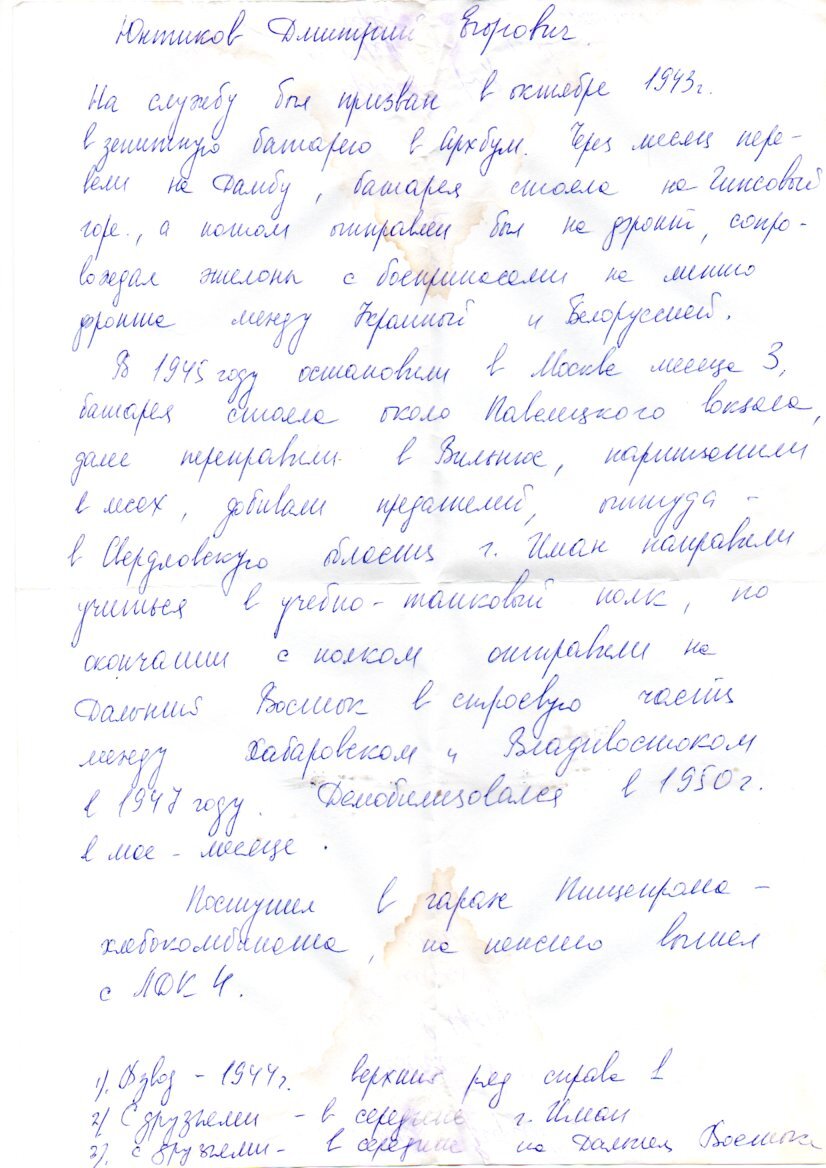 Юнтиков Дмитрий Егорович.
На службу был призван в октябре 1943г.
в зенитную батарею в Архбум. Через месяц пере-
вели на Дамбу, батарея стояла на Гипсовый
горе., а потом отправлен был на фронт, сопро-
вождал эшелоны с боеприпасами на линию
фронта между Украиный и Белоруссией.
В 1945 году остановили в Москве месяца 3,
батарея стояла около Павелецкого вокзала,
далее переправили в Вильнюс, партизанили
в лесах, добивали предателей, оттуда -
в Свердловскую область г. Иман направили
учиться в учебно-танковый полк, по
окончании с полком отправили на
Дальний Восток в строевую часть
между Хабаровском и Владивостоком
в 1947 году. Демобилизовался в 1950г.
в мае - месяце.
Поступил в гараж Пищепрома -
хлебокомбината, на пенсию вышел
с ЛДК 4.
1). Взвод - 1944г. верхний ряд справа 1
2) С друзьями - в середине г. Иман
3). с друзьями - в середине на Дальнем Востоке